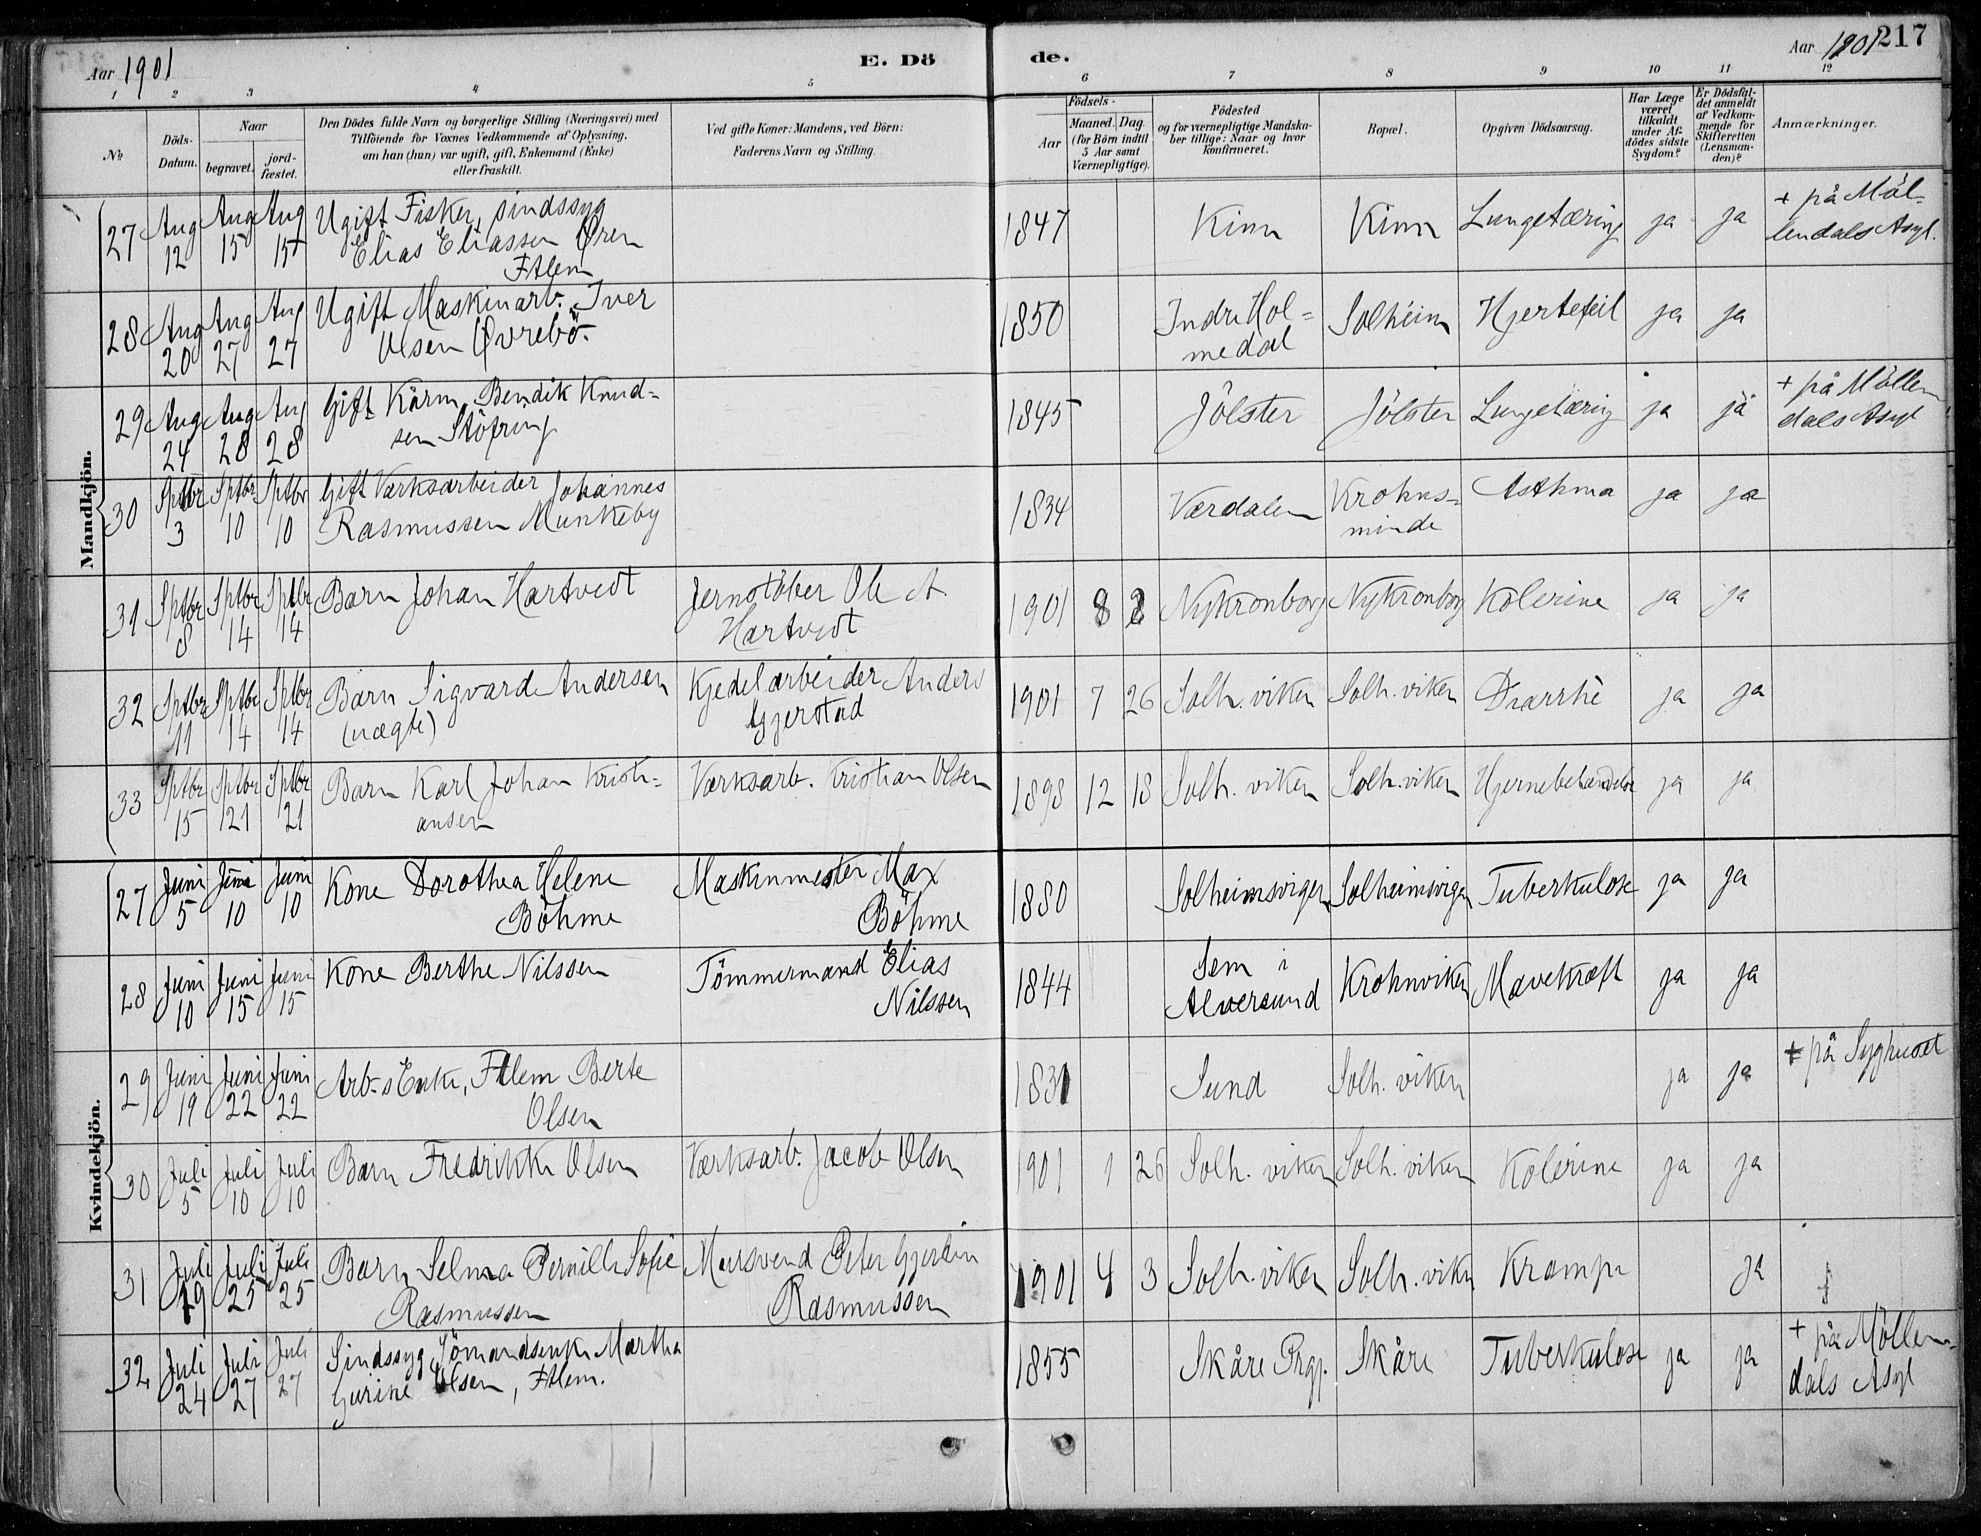 Aar 1901
E. Dö
de.
Aar 1901
217
1 2 3 4 5 6 7 8 9 10 11 12
№
Döds-Datum.
Naar
begravet.
jord-fæstet.
Den Dödes fulde Navn og borgerlige Stilling (Næringsvei) med
Tilföiende for Voxnes Vedkommende af Oplysning,
om han (hun) var ugift, gift, Enkemand (Enke)
eller fraskilt.
Ved gifte Koner: Mandens, ved Börn:
Faderens Navn og Stilling.
Födsels-
Aar
Maaned. Dag.
(for Börn indtil
5 Aar samt
Værnepligtige).
Födested
og for værnepligtige Mandska-
ber tillige: Naar og hvor
konfirmeret.
Bopæl.
Opgiven Dödsaarsag.
Har Læge
været
tilkaldt
under Af-
dödes sidste
Sygdom?
Er Dödsfal-
det anmeldt
af Vedkom-
mende for
Skifteretten
(Lensman-
den)?
Anmærkninger.
Mandkjön.
27 Aug 12 Aug 15 Aug 15 Ugift Fisker, sindssyg
Elias Eliassen Øren
Ftlem
1847 Kinn Kinn Lungetæring ja ja + på Möl-
lendals Asyl.
28 Aug 20 Aug 27 Aug 27 Ugift Maskinarb. Iver
Olsen Øvrebö.
1850 Indre Hol-
medal Solheim Hjertefeil ja ja
29 Aug 24 Aug 28 Aug 28 Gift Kårm. Bendik Knud-
sen Stöfring
1845 Jölster Jölster Lungetæring ja ja + på Möllen
dals Asyl
30 Sptbr 3 Sptbr 10 Sptbr 10 Gift Værksarbeider Johannes
Rasmussen Munkeby
1834 Værdalen Krohns-
minde Asthma ja ja
31 Sptbr 8 Sptbr 14 Sptbr 14 Barn Johan Hartvedt
Jernstöber Ole A
Hartvedt
1901 8 2 Nykronborg Nykronborg Kolerine ja ja
32 Sptbr 11 Sptbr 14 Sptbr 14 Barn Sigvard Andersen
(uægte)
Kjedelarbeider Anders
Gjerstad
1901 7 26 Solh. viken Solh. viken Diarrhè ja ja
33 Sptbr 15 Sptbr 21 Sptbr 21 Barn Karl Johan Kristi-
ansen
Værksarb. Kristian Olsen
1898 12 18 Solh. viken Solh. viken Hjernebetændelse ja ja
Kvindekjön.
27 Juni 5 Juni 10 Juni 10 Kone Dorothea Helene
Böhme
Maskinmester Max
Böhme
1880 Solheimsvigen Solheimsvigen Tuberkulose ja ja
28 Juni 10 Juni 15 Juni 15 Kone Berthe Nilssen
Tömmermand Elias
Nilssen
1844 Sem i
Alversund Krohnviken Mavekræft ja ja
29 Juni 19 Juni 22 Juni 22 Arb.s Enke, Ftlem Berte
Olsen
1831 Sund Solh. viken ja ja + på Syghuset
30 Juli 5 Juli 10 Juli 10 Barn Fredrikke Olsen
Værksarb. Jacob Olsen
1901 1 26 Solh. viken Solh. viken Kolerine ja ja
31 Juli 19 Juli 25 Juli 25 Barn Selma Pernille Sofie
Rasmussen
Mursvend Peter
Rasmussen
1901 4 3 Solh. viken Solh. viken Krampe ja
32 Juli 24 Juli 27 Juli 27 Sindssyg Sömandsenke Martha
Gurine Olsen, Ftlem.
1855 Skåre Prgj. Skåre Tuberkulose ja ja + på Möllen-
dals Asyl